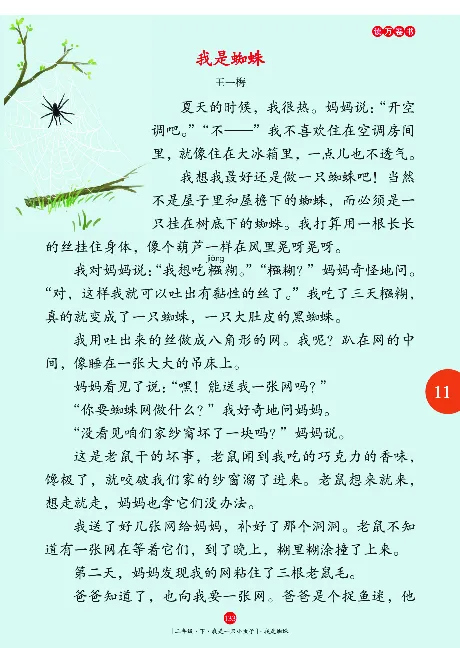 读万卷书
我是蜘蛛
王一梅
夏天的时候，我很热。妈妈说：“开空
调吧。”“不——”我不喜欢住在空调房间
里，就像住在大冰箱里，一点儿也不透气。
我想我最好还是做一只蜘蛛吧！当然
不是屋子里和屋檐下的蜘蛛，而必须是一
只挂在树底下的蜘蛛。我打算用一根长长
的丝挂住身体，像个葫芦一样在风里晃呀晃呀。
jiàng
我对妈妈说：“我想吃糨糊。”“糨糊？”妈妈奇怪地问。
“对，这样我就可以吐出有黏性的丝了。”我吃了三天糨糊，
真的就变成了一只蜘蛛，一只大肚皮的黑蜘蛛。
我用吐出来的丝做成八角形的网。我呢？趴在网的中
间，像睡在一张大大的吊床上。
妈妈看见了说：“嘿！能送我一张网吗？”
“你要蜘蛛网做什么？”我好奇地问妈妈。
“没看见咱们家纱窗坏了一块吗？”妈妈说。
这是老鼠干的坏事，老鼠闻到我吃的巧克力的香味，
馋极了，就咬破我们家的纱窗溜了进来。老鼠想来就来，
想走就走，妈妈也拿它们没办法。
我送了好几张网给妈妈，补好了那个洞洞。老鼠不知
道有一张网在等着它们，到了晚上，糊里糊涂撞了上来。
第二天，妈妈发现我的网粘住了三根老鼠毛。
爸爸知道了，也向我要一张网。爸爸是个捉鱼迷，他
11
133
二年级·下·我是一只小虫子·我是蜘蛛